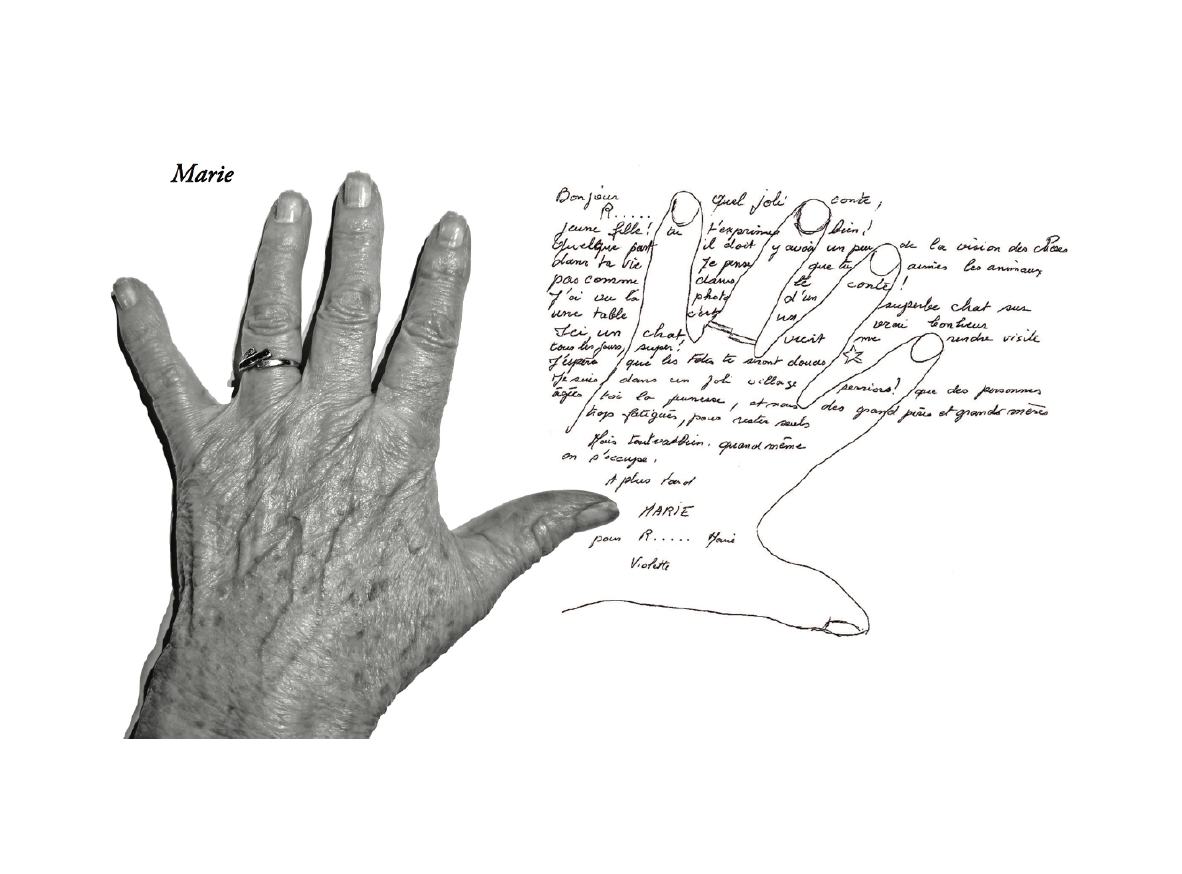 Marie
Bonjour Quel joli conte,
R.....
jeune fille! tu t'exprimes bien!
Quelque part il doit y avoir un peu de la vision des choses
dans ta vie Je pense que tu aimes les animaux
pas comme dans le conte!
J'ai vu la photo d'un superbe chat sur
une table c'est un vrai bonheur
Ici un chat vient me rendre visite
tous les jours, super!
J'espère que les totes te seront douces
Je suis dans un joli village seniors! que des personnes
âgées toi la jeunesse, et nous des grand pères et grands mères
trops fatigués, pour rester seuls
Mais tout va bien. quand même
on s'occupe.
A plus tard
MARIE
pour R..... Marie
Violette